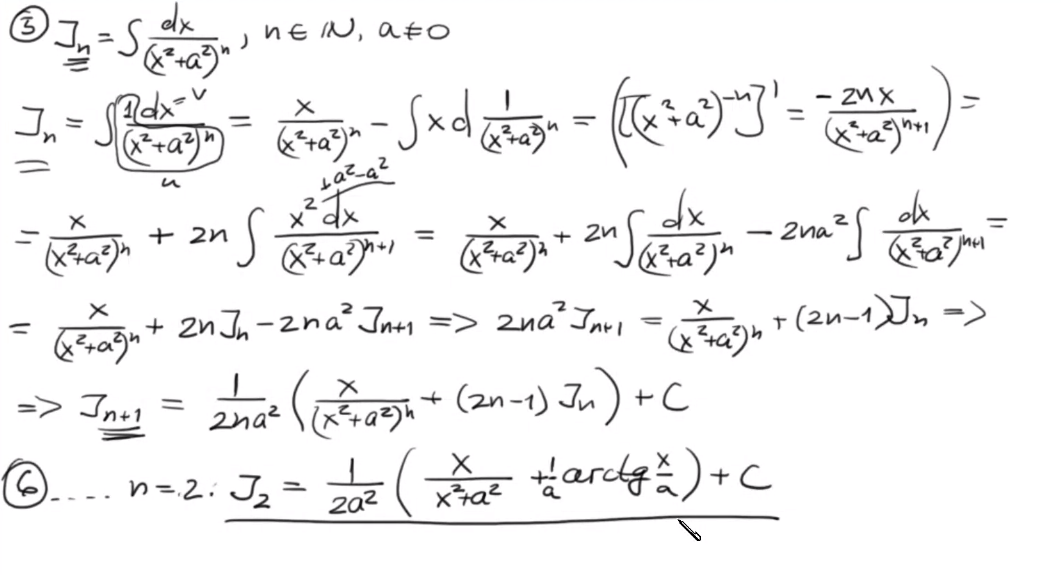 ⑤ J_n = ∫ dx/(x²+a²)^n, n ∈ ℕ, a ≠ 0
J_n = ∫ 1·dx=v/(x²+a²)^n u = x/(x²+a²)^n − ∫ x d 1/(x²+a²)^n = ([(x²+a²)^{-n}]' = −2nx/(x²+a²)^{n+1}) =
= x/(x²+a²)^n + 2n ∫ x² +a²−a² dx/(x²+a²)^{n+1} = x/(x²+a²)^n + 2n ∫ dx/(x²+a²)^n − 2na² ∫ dx/(x²+a²)^{n+1} =
= x/(x²+a²)^n + 2n J_n − 2na² J_{n+1} => 2na² J_{n+1} = x/(x²+a²)^n + (2n−1) J_n =>
=> J_{n+1} = 1/2na² (x/(x²+a²)^n + (2n−1) J_n) + C
⑥ .... n = 2: J_2 = 1/2a² (x/x²+a² + 1/a arctg x/a) + C